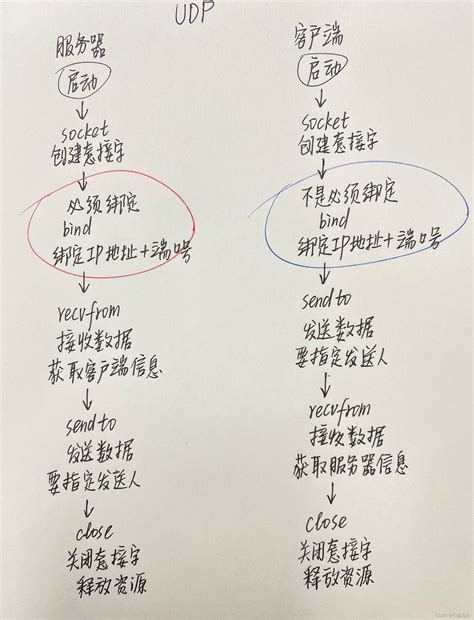 UDP
服务器
启动
socket
创建套接字
必须绑定
bind
绑定IP地址+端口号
recvfrom
接收数据
获取客户端信息
sendto
发送数据
要指定发送人
close
关闭套接字
释放资源
客户端
启动
socket
创建套接字
不是必须绑定
bind
绑定IP地址+端口号
sendto
发送数据
要指定发送人
recvfrom
接收数据
获取服务器信息
close
关闭套接字
释放资源